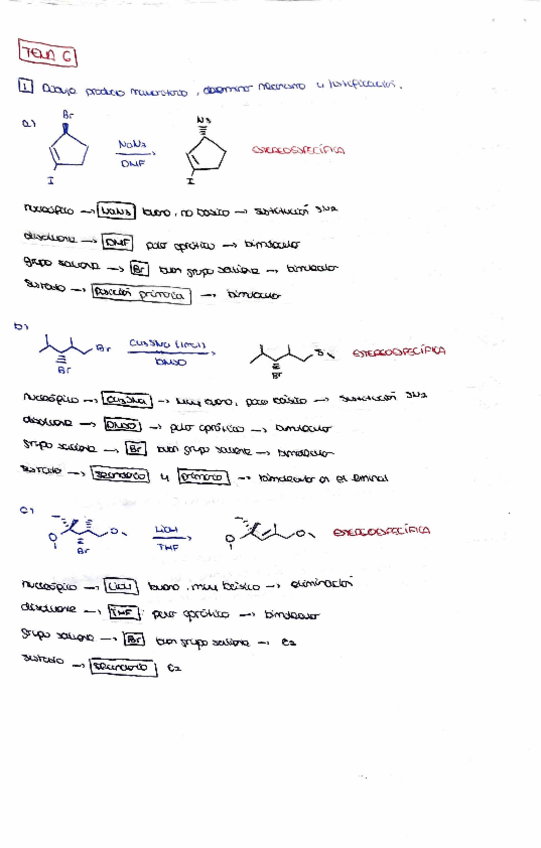 TEMA 6
1 Dibuja producto mayoritario, determinar mecanismo y justificación.
a)
Br
I
NaN3
DMF
N3
I
ESTEREOESPECÍFICA
nucleófilo → NaN3 bueno, no básico → sustitución SN2
disolvente → DMF polar aprótico → bimolecular
grupo saliente → Br buen grupo saliente → bimolecular
sustrato → posición primaria → bimolecular
b)
Br
Br
CH3SNa (1mol)
DMSO
S
Br
ESTEREOESPECÍFICA
nucleófilo → CH3SNa → muy bueno, poco básico → sustitución SN2
disolvente → DMSO → polar aprótico → bimolecular
grupo saliente → Br buen grupo saliente → bimolecular
sustrato → secundario y primario → bimolecular en el
c)
O
Br
O
THF
O
O
ESTEREOESPECÍFICA
nucleófilo → bueno, muy básico → eliminación
disolvente → THF: polar aprótico → bimolecular
grupo saliente → Br buen grupo saliente → E2
sustrato → secundario E2